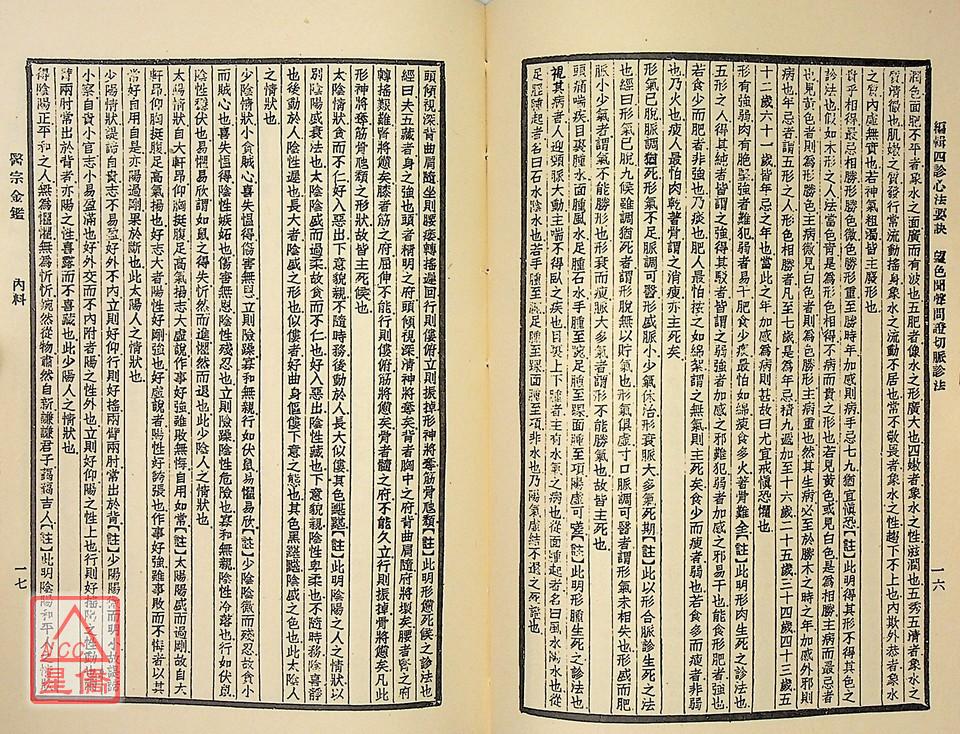 編輯四診心法要訣　望色聞聲問證切脈診法
一六
潤色面肥不平者象水之面廣而有波也五肥者像水之形廣大也四嫩者象水之性滋潤也五秀五清者象水之
質清澈也肌嫩之質發行常流動搖身象水之流動不居也常不敬畏者象水之性趨下不上也內欺外恭者象水
之質內虛無實也若神氣粗濁皆主廢形也
貴乎相得最忌相勝形勝色微色勝形重至勝時年加感則病年忌七九猶宜慎恐【註】此明得其形不得其色之
診法也假如木形之人法當色青是為形色相得不病而貴之形也若見黃色或見白色是為相勝主病而最忌者
也見黃色者則為形勝色主病微見白色者則為色勝形主病重也然其生病必至於勝木之時之年加感外邪則
病也年忌者謂五形之人形色相勝者凡至七歲是為年忌積九遞加至十六歲二十五歲三十四歲四十三歲五
十二歲六十一歲皆年忌之年也當此之年加感為病則甚故曰尤宜戒慎恐懼也
形有強弱肉有脆堅強者難犯弱者易干肥食少痰最怕如綿瘦食多火著骨難全【註】此明形肉生死之診法也
五形之人得其純者皆謂之強弱得其駁者皆謂之弱強者加感之邪難犯弱者加感之邪易干也能食形肥者強也
若食少而肥者非強也乃痰也肥人最怕按之如綿絮謂之無氣則主死矣食少而瘦者弱也若食多而瘦者非弱
也乃火也瘦人最怕肉乾著骨謂之消瘦亦主死矣
形氣已脫脈調猶死形氣不足脈調可醫形盛脈小少氣休治形衰脈大多氣死期【註】此以形合脈診生死之法
也經曰形氣已脫九候雖調猶死者謂形脫無以貯氣也形氣俱虛寸口脈調可醫者謂形氣未相失也形盛而肥
脈小少氣者謂氣不能勝形也形衰而瘦脈大多氣者謂形不能勝氣也故皆主死也
頸痛喘疾目裹腫水面腫風水足腫石水手腫至腕足腫至踝面腫至項陽虛可嗟【註】此明形腫生死之診法也
頭傾視深背曲肩隨坐則腰痿轉搖遲回行則僂俯立則振掉形神將奪筋骨虺頹【註】此明形憊死候之診法也
經曰夫五藏者身之強也頭者精明之府頭傾視深清神將奪矣背者胸中之府背曲肩隨府將壞矣腰者腎之府
轉搖艱難腎將憊矣膝者筋之府屈伸不能行則僂俯筋將憊矣骨者髓之府不能久立行則振掉骨將憊矣凡此
形神將奪筋骨虺頹之形狀故皆主死候也
太陰情狀貪而不仁好入惡出下意貌親不隨時務後動於人長大似僂其色黮黮【註】此明陰陽之人之情狀以
別陰陽盛衰法也太陰陰盛而過柔故貪而不仁也好入惡出陰性藏也下意貌親陰性卑柔也不隨時務陰喜靜
也後動於人陰性遲也長大者陰盛之形也似僂者好曲身傴僂下意之態也其色黑黮黮陰盛之色也此太陰人
之情狀也
少陰情狀小貪賊心喜失慍得傷害無恩立則險躁寡和無親行如伏鼠易懼易欣【註】少陰陰微而殘忍故貪小
而賊心也喜失慍得陰性嫉妬也傷害無恩陰性殘忍也立則險躁陰性危險也寡和無親陰性冷落也行如伏鼠
陰性隱伏也易懼易欣謂如鼠之得失忻然而進懼然而退也此少陰人之情狀也
太陽情狀自大軒昂仰胸挺腹足高氣揚志大虛說作事好強雖敗無悔自用如常【註】太陽陽盛而過剛故自大
軒昂仰胸挺腹足高氣揚也好志大者陽性好剛強也好虛說者陽性好誇張也作事好強雖事敗而不悔者以其
常好自用自是亦陽過剛果於斷也此太陽人之情狀也
小察自貴小官志小易盈滿也好外交而不內附者陽之性外也立則好仰陽之性上也行則好搖
臂兩肘常出於背者亦陽之性喜露而不喜藏也此少陽人之情狀也
得陰陽正平和之人無為懼懼無為忻忻婉然從物肅然自新謙謙君子藹藹吉人【註】此明陰陽和平
醫宗金鑑　內科
一七
NCC
星僑